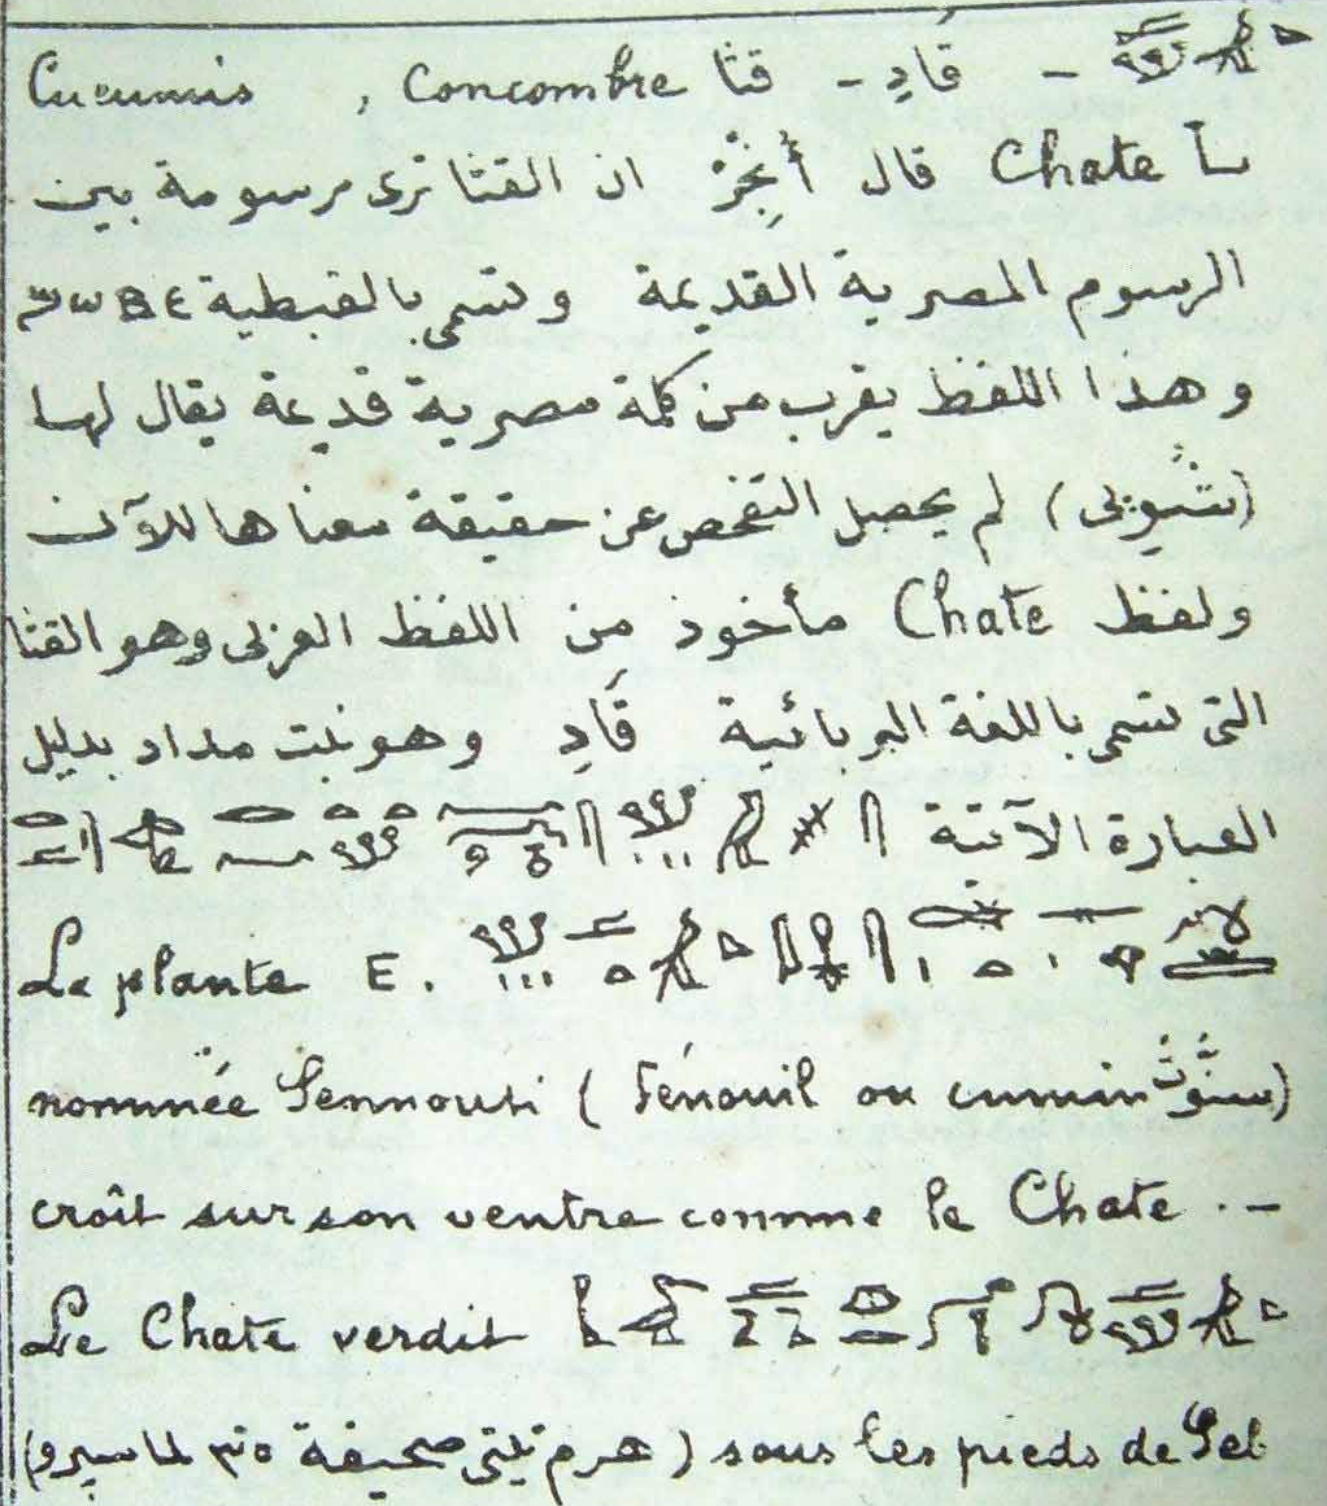 - قَادِ - قثا Cucumis , Concombre
Chate قال أُنْجِرْ ان القثا ترى مرسومة بين
الرسوم المصرية القديمة وتسمى بالقبطية ϣⲱⲃⲉ
وهذا اللفظ يقرب من كلمة مصرية قديمة يقال لها
( ) لم يحصل التفحص عن حقيقة معناها للآن
ولفظ Chate مأخوذ من اللفظ العربى وهو القثا
التى تسمى باللغة البربائية قَادِ وهو نبت مداد بدليل
العبارة الآتية
La plante E.
nommée Sennouti ( fénouil ou cumin سنوت)
croît sur son ventre comme le Chate . -
Le Chate verdit
sous les pieds de Seb (هرم تيتى صحيفة لماسپرو)